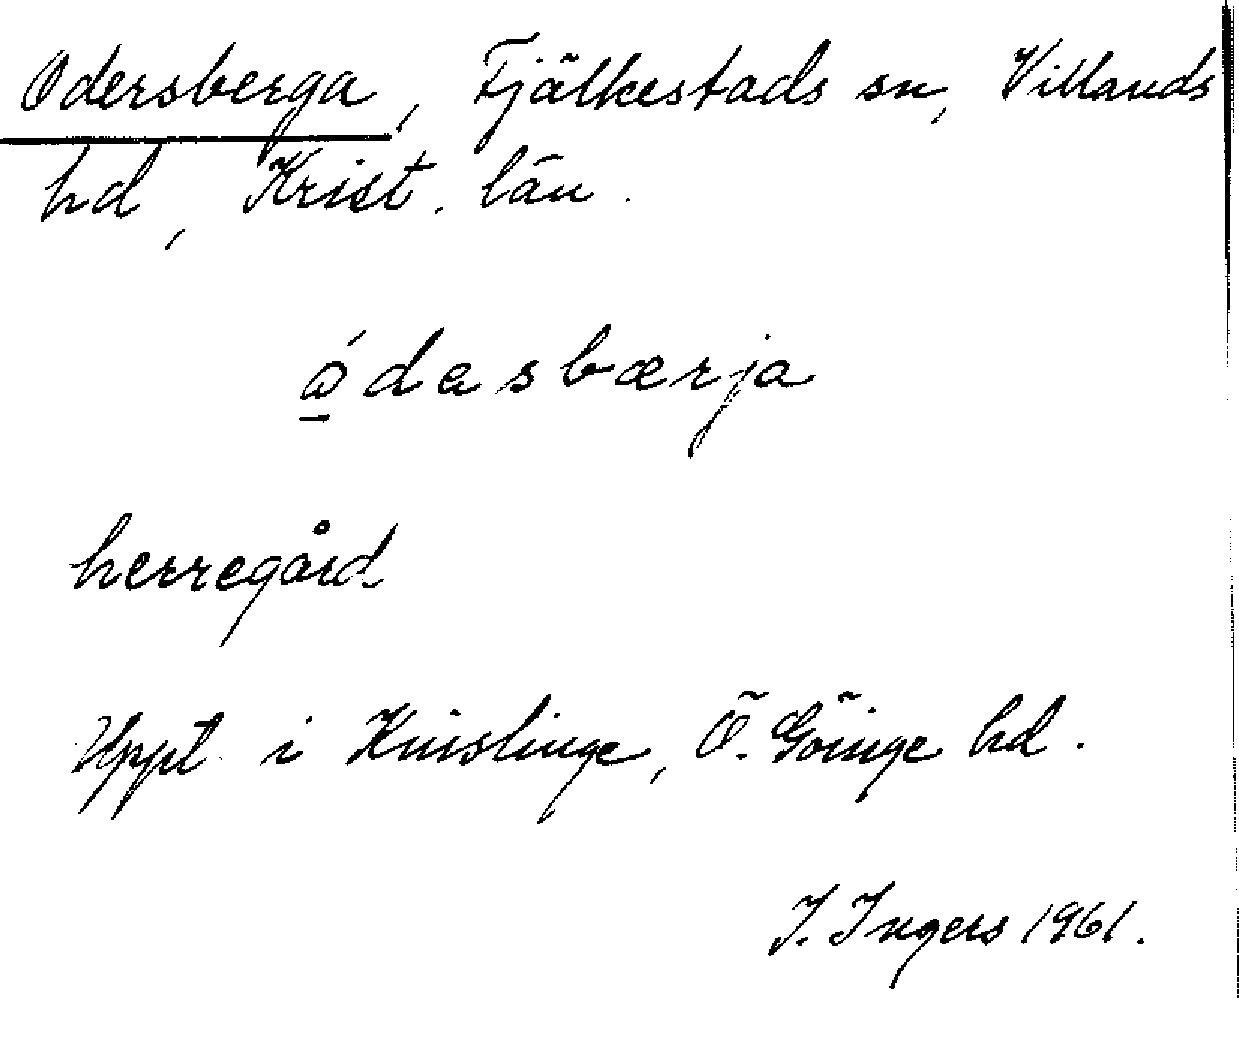 Odersberga, Fjälkestads sn, Villands
hd, Krist. län.
ǫ́dasbærja
herregård
Uppt. i Knislinge, Ö. Göinge hd.
I. Ingers 1961.